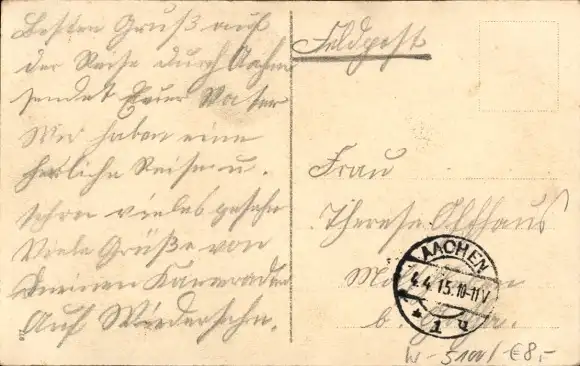 Besten Gruß auf
der Reise durch Aachen
sendet Euer Vater
Wir haben eine
herliche Reise u.
schon vieles gesehn
Viele Grüße von
meinen Kameraden
Auf Wiedersehn.
Feldpost
Frau
Therese Olthaus
b.
AACHEN
4.4.15.10-11V
* 1 q
W-5100/€8,-